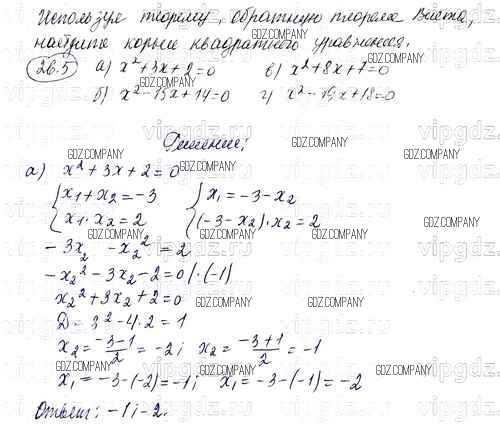 Используя теорему, обратную теореме Виета,
найдите корни квадратного уравнения.
26.5 а) x² + 3x + 2 = 0 в) x² + 8x + 7 = 0
б) x² - 15x + 14 = 0 г) x² - 19x + 18 = 0
Решение:
а) x² + 3x + 2 = 0
{x₁ + x₂ = -3 {x₁ = -3 - x₂
{x₁ · x₂ = 2 {(-3 - x₂) · x₂ = 2
- 3x₂ - x₂² = 2
- x₂² - 3x₂ - 2 = 0 | · (-1)
x₂² + 3x₂ + 2 = 0
D = 3² - 4 · 2 = 1
x₂ = (-3-1)/2 = -2; x₂ = (-3+1)/2 = -1
x₁ = -3 - (-2) = -1; x₁ = -3 - (-1) = -2
Ответ: -1; -2.
GDZ.COMPANY
vipgdz.ru